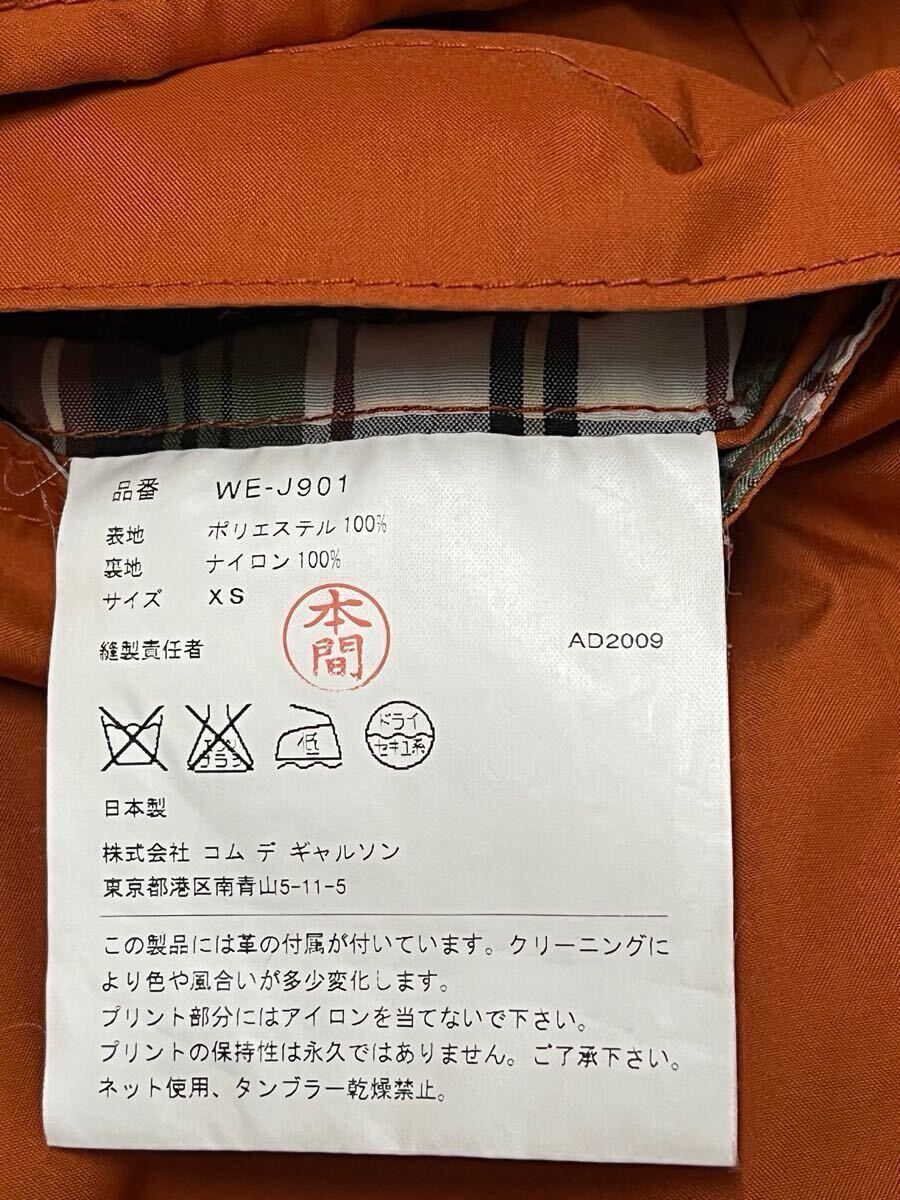 品番 WE-J901
表地 ポリエステル100%
裏地 ナイロン100%
サイズ XS
本間
縫製責任者 AD2009
エンソ
プラン
低
ドライ
セキユ系
日本製
株式会社 コム デ ギャルソン
東京都港区南青山5-11-5
この製品には革の付属が付いています。クリーニングに
より色や風合いが多少変化します。
プリント部分にはアイロンを当てないで下さい。
プリントの保持性は永久ではありません。ご了承下さい。
ネット使用、タンブラー乾燥禁止。